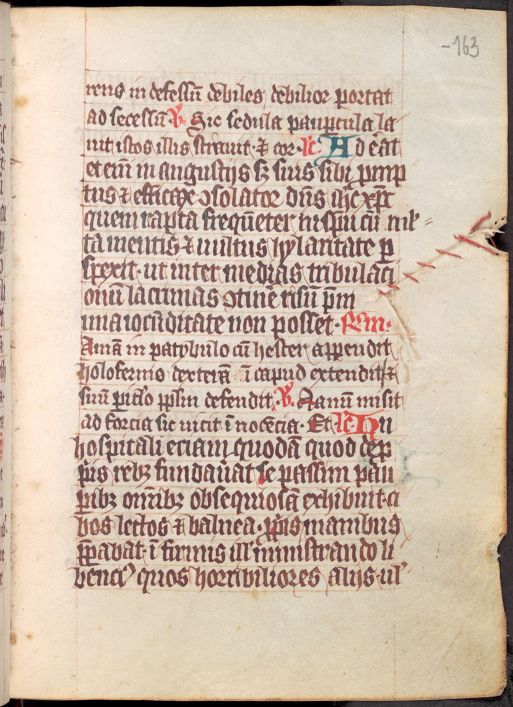 -163
rens indefessum debiles debilior portat
ad secessum V. Sic sedula paupercula la
uit istos illis strauit. et cor. lc. Ad erat
et eim in angustijs suis sibi promp
tus et efficax consolator dns ihc xpc
quem rapta frequenter in spu cum mul=
ta mentis et uultus hylaritate p
spexit. ut inter medias tribulaci
onum lacrimas contine risum pm
ma iocunditate non posset. Rm.
Aman in patybulo cum hester appendit
holofernio dexteram in capud extendit et
suum populum defendit. V. Manum misit
ad forcia sic uicit inocencia. Et lc. In
hospitali eciam quodam quod de pp
rijs rebus fundauat se passim pau
peribus omnibus obsequiosam exhibuit. ci
bos lectos et balnea. pprijs manibus
pparabat. infirmis ministrando li
benci' quos horribiliores alijs. ul'